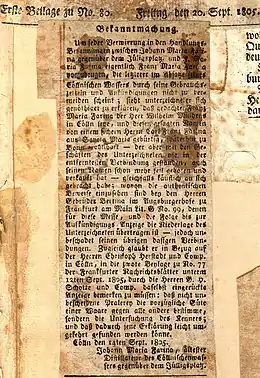 Erste Beilage zu No. 80. Freitag den 20. Sept. 1805.
Bekanntmachung.
Um jeder Verwirrung in den Handlungs-
Benennungen zwischen Johann Maria Fa-
rina gegenüber dem Jüligsplatz, und J. G.
Farina eigentlich Franz Maria Farina
vorzubeugen, die letzterer im Absatz
Cöllnischen Wassers durch seine Gebrauchs-
zettel und Ankündigungen nicht zu ver-
meiden scheint; sieht unterzeichneter sich
genöthiget zu erklären, daß gedachter Franz
Maria Farina der Herr Wilhelm Mülhens
in Cölln seye, und diesen gesagten Namen
von einem sichern Herrn Carl Franz Farina
aus Santa Maria Maggiore, wohnhaft zu
Bonn — der aber weit den Ge-
schäften des Unterzeichneten nie in der
entferntesten Verbindung gestanden, auch
seinen Namen schon mehr feil geboten und
verkauft hat — gleichfalls käuflich an sich
gebracht habe; wovon die authentischen
Beweise einzusehen sind bey den Herren
Gebrüder Bertina im Augsburgerhofe zu
Frankfurt am Main Lit. G No. 99, denen
für diese Messe, und die Folge bis zur
Aufkündigungs-Anzeige die Niederlage des
Unterzeichneten übertragen ist — jedoch un-
beschadet seinen übrigen dasigen Verbin-
dungen. Zugleich glaubt er in Bezug auf
die Herren Christoph Herstadt und Comp.
in Cölln, in die zweite Beylage zu No. 77
der Frankfurter Nachrichtsblätter unterm
12ten Sept. 1805, durch die Herren G. H.
Scholtz und Comp. daselbst eingerückte
Anzeige bemerken zu müssen: daß nicht un-
bescheidene Prahlerey die vorzügliche Güte
einer Waare gegen alle andere bestimme,
sondern die Untersuchung des Kenners,
und daß dadurch jene Erklärung leicht um-
gekehrt gefunden werden könne.
Cölln den 12ten Sept. 1805.
Johann Maria Farina, ältester
Distillateur des Cöllnischenwas-
sers gegenüber dem Jüligsplatz.